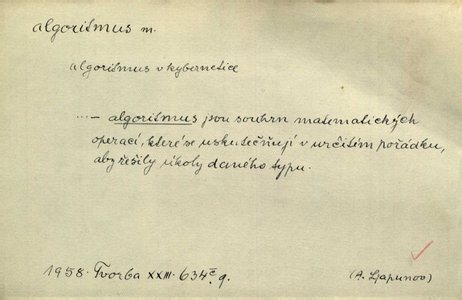 algoritmus m.
algoritmus v kybernetice
...– algoritmus jsou souhrn matematických
operací, které se uskutečňují v určitém pořádku,
aby řešily úkoly daného typu.
1958. Tvorba XXIII. 634č g.
(A. Ljapunov)